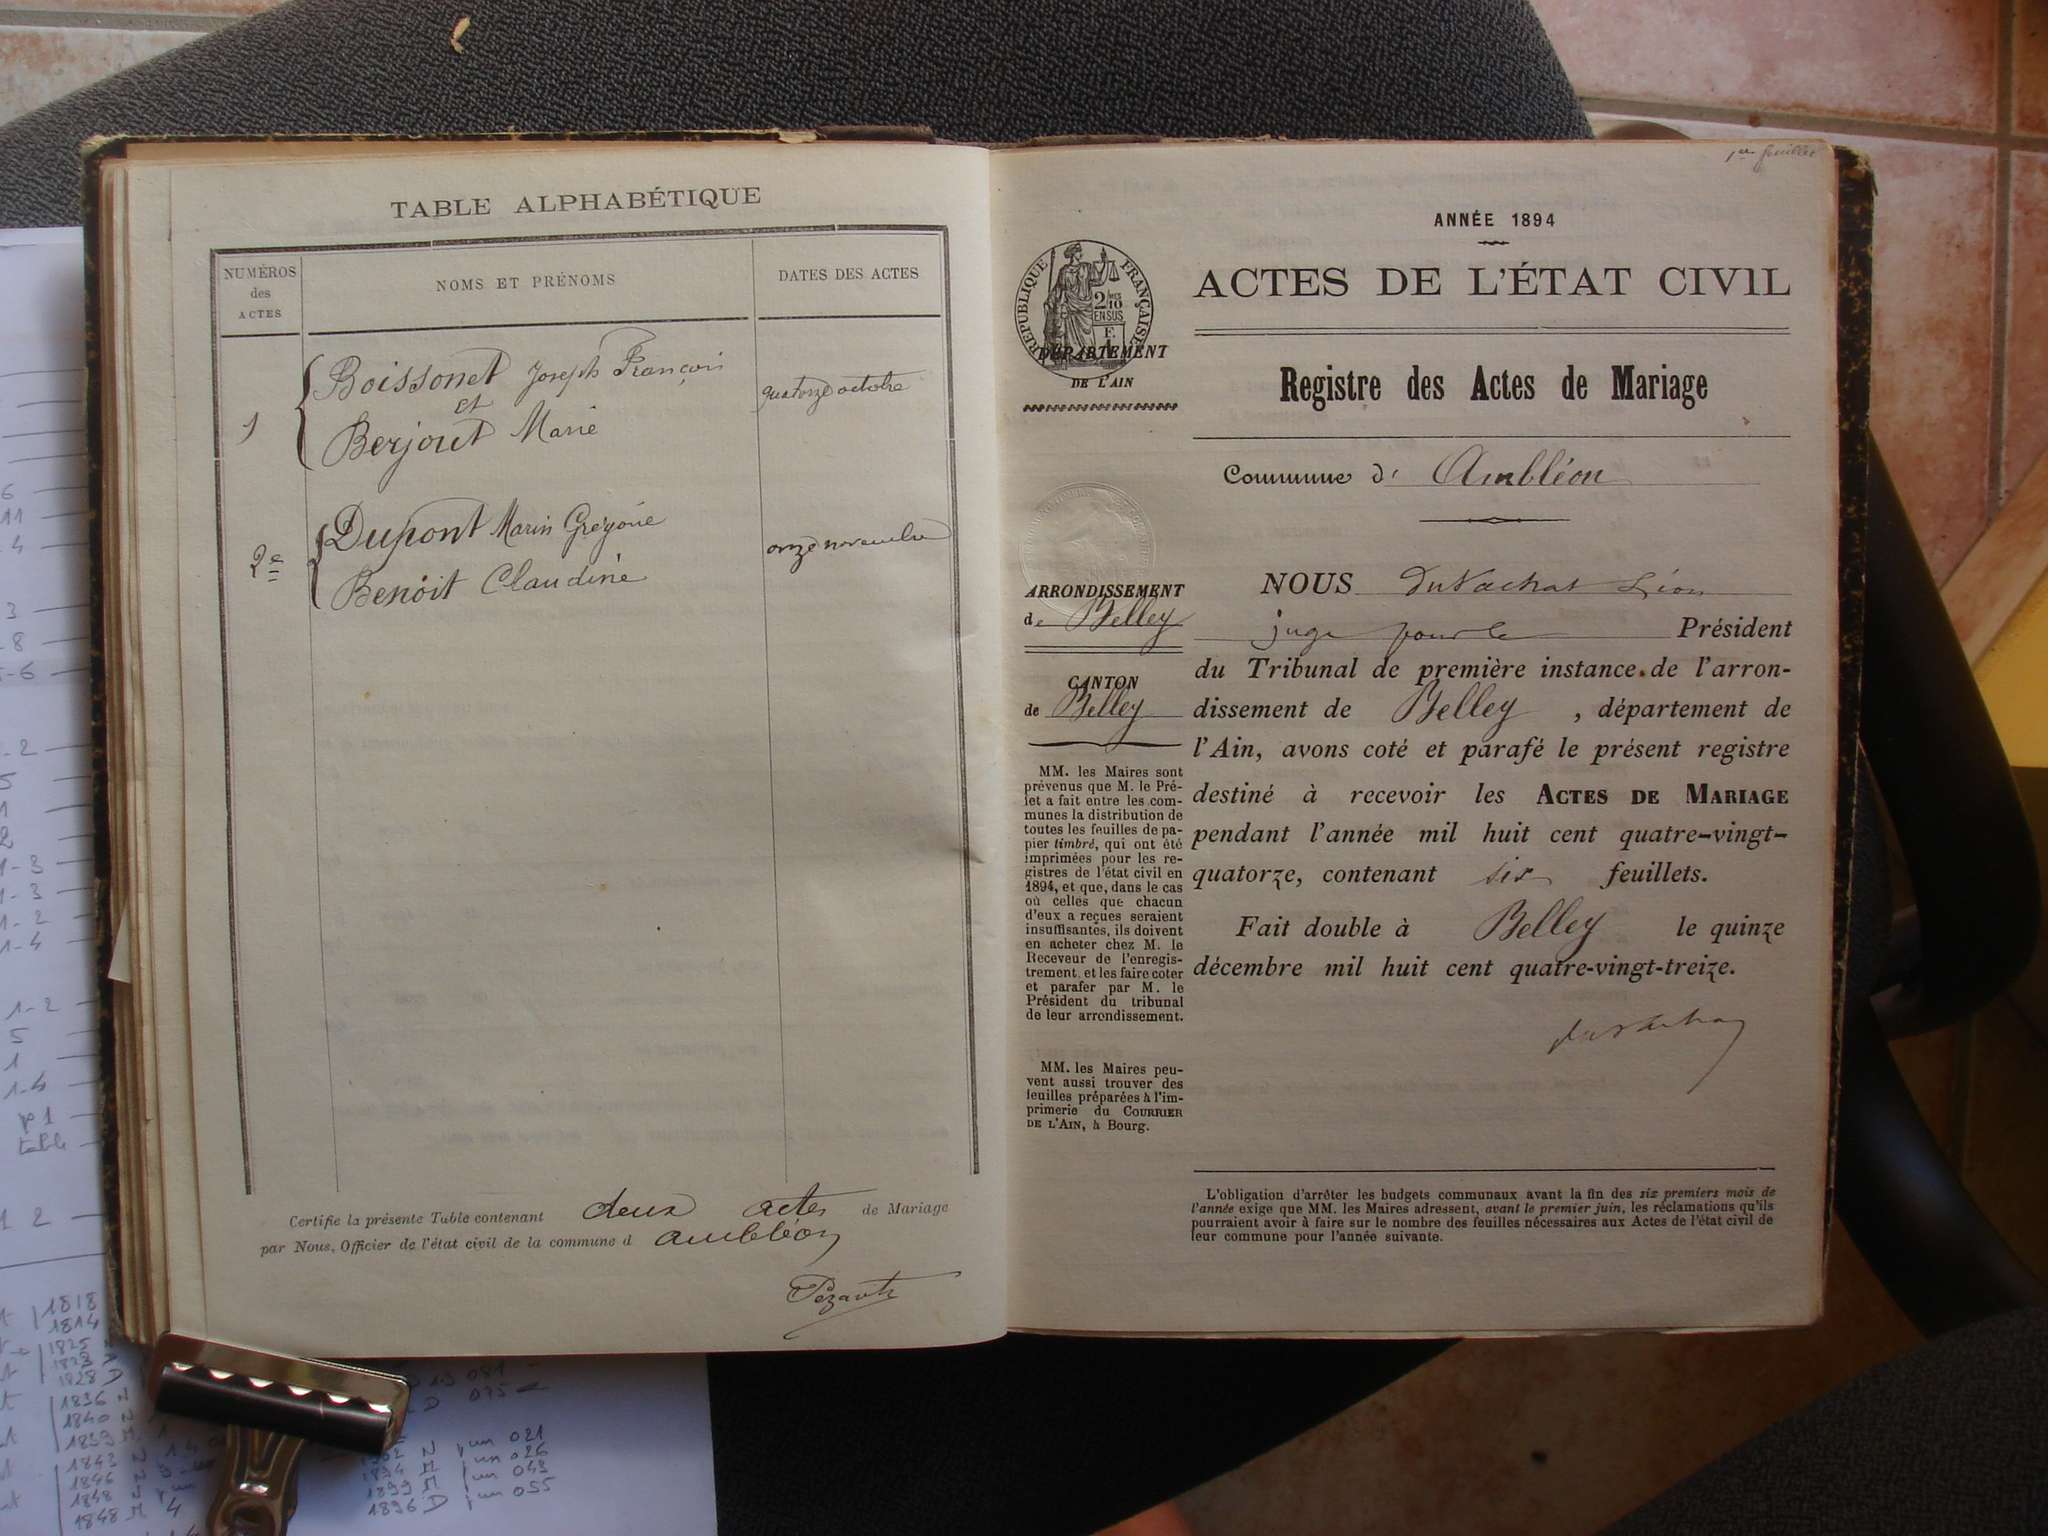 TABLE ALPHABÉTIQUE
NUMÉROS
des
ACTES
NOMS ET PRÉNOMS
DATES DES ACTES
1
Boissonet Joseph François
et
Berjout Marie
quatorze octobre
2e
Dupont Marin Grégoire
Benoit Claudine
onze novembre
Certifie la présente Table contenant deux actes de Mariage
par Nous, Officier de l'état civil de la commune d ambléon
1er feuillet
ANNÉE 1894
RÉPUBLIQUE FRANÇAISE
2 MES
10
EN SUS
DÉPARTEMENT
DE L'AIN
ACTES DE L'ÉTAT CIVIL
Registre des Actes de Mariage
Commune d' Ambléon
ARRONDISSEMENT
de Belley
CANTON
de Belley
MM. les Maires sont
prévenus que M. le Pré-
fet a fait entre les com-
munes la distribution de
toutes les feuilles de pa-
pier timbré, qui ont été
imprimées pour les re-
gistres de l'état civil en
1894, et que, dans le cas
où celles que chacun
d'eux a reçues seraient
insuffisantes, ils doivent
en acheter chez M. le
Receveur de l'enregis-
trement, et les faire coter
et parafer par M. le
Président du tribunal
de leur arrondissement.
MM. les Maires peu-
vent aussi trouver des
feuilles préparées à l'im-
primerie du COURRIER
DE L'AIN, à Bourg.
NOUS duVachat Léon
juge pour le Président
du Tribunal de première instance de l'arron-
dissement de Belley, département de
l'Ain, avons coté et parafé le présent registre
destiné à recevoir les ACTES DE MARIAGE
pendant l'année mil huit cent quatre-vingt-
quatorze, contenant six feuillets.
Fait double à Belley le quinze
décembre mil huit cent quatre-vingt-treize.
L'obligation d'arrêter les budgets communaux avant la fin des six premiers mois de
l'année exige que MM. les Maires adressent, avant le premier juin, les réclamations qu'ils
pourraient avoir à faire sur le nombre des feuilles nécessaires aux Actes de l'état civil de
leur commune pour l'année suivante.
1818
1814
1825
1823
1828 D
1836 N
1840 N
1839 M
1843 N
1846 N
1848 N
1848 M 4
1899 M un 043
1896 D un 055